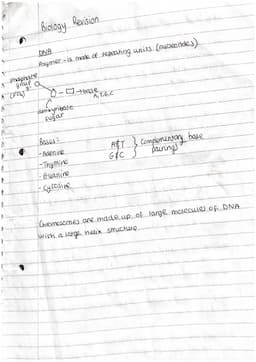 Biology Revision
DNA
Polymer - is made of repeating units (nucleotides)
phosphate
group
→ base
A,T,G,C
deoxyribose
sugar
Bases:
- Adenine
- Thymine
- Guanine
- Cytosine
A & T
G & C
} complementary base
pairings
Chromosomes are made up of large molecules of DNA
with a large helix structure.